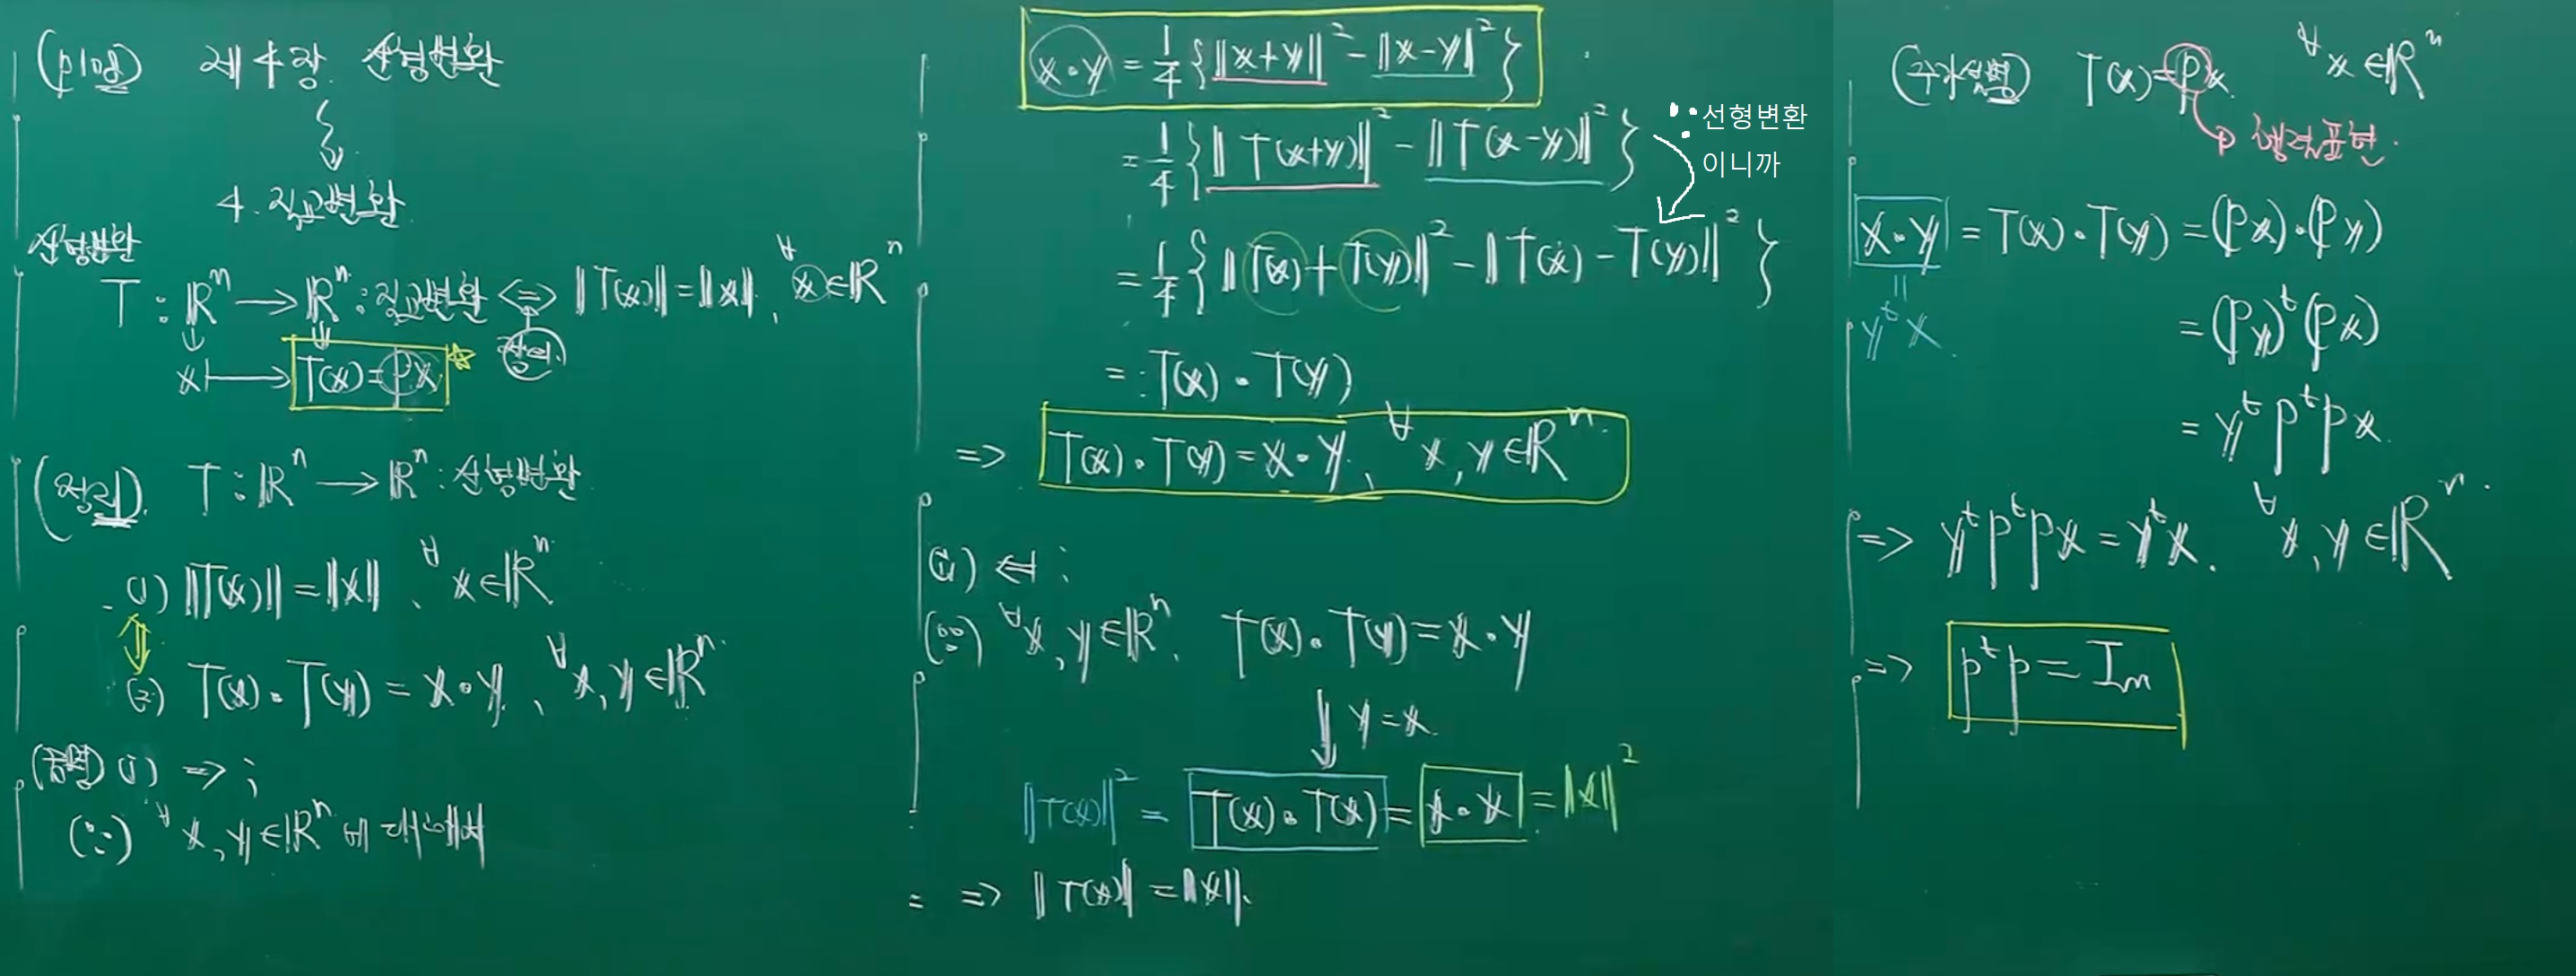 (p102) 제4장 선형변환
4. 직교변환
선형변환
T : ℝⁿ → ℝⁿ : 직교변환 ⇔ ‖T(x)‖ = ‖x‖, ∀x∈ℝⁿ
정의
x ↦ T(x) = Px ☆
(정리) T : ℝⁿ → ℝⁿ : 선형변환
(1) ‖T(x)‖ = ‖x‖, ∀x∈ℝⁿ
⇕
(2) T(x)·T(y) = x·y, ∀x, y∈ℝⁿ
(증명) (i) ⇒ ;
(∵) ∀x, y∈ℝⁿ에 대해서
x·y = 1/4 {‖x+y‖² - ‖x-y‖²}
= 1/4 {‖T(x+y)‖² - ‖T(x-y)‖²}
∵선형변환
이니까
= 1/4 {‖T(x)+T(y)‖² - ‖T(x)-T(y)‖²}
= T(x)·T(y)
⇒ T(x)·T(y) = x·y, ∀x, y∈ℝⁿ
(ii) ⇐ ;
(∵) ∀x, y∈ℝⁿ, T(x)·T(y) = x·y
↓ y = x
‖T(x)‖² = T(x)·T(x) = x·x = ‖x‖²
⇒ ‖T(x)‖ = ‖x‖.
(추가설명) T(x) = Px ∀x∈ℝⁿ
→ 행렬표현.
x·y = T(x)·T(y) = (Px)·(Py)
‖
yᵗx
= (Py)ᵗ(Px)
= yᵗPᵗPx
⇒ yᵗPᵗPx = yᵗx. ∀x, y∈ℝⁿ.
⇒ PᵗP = Iₙ